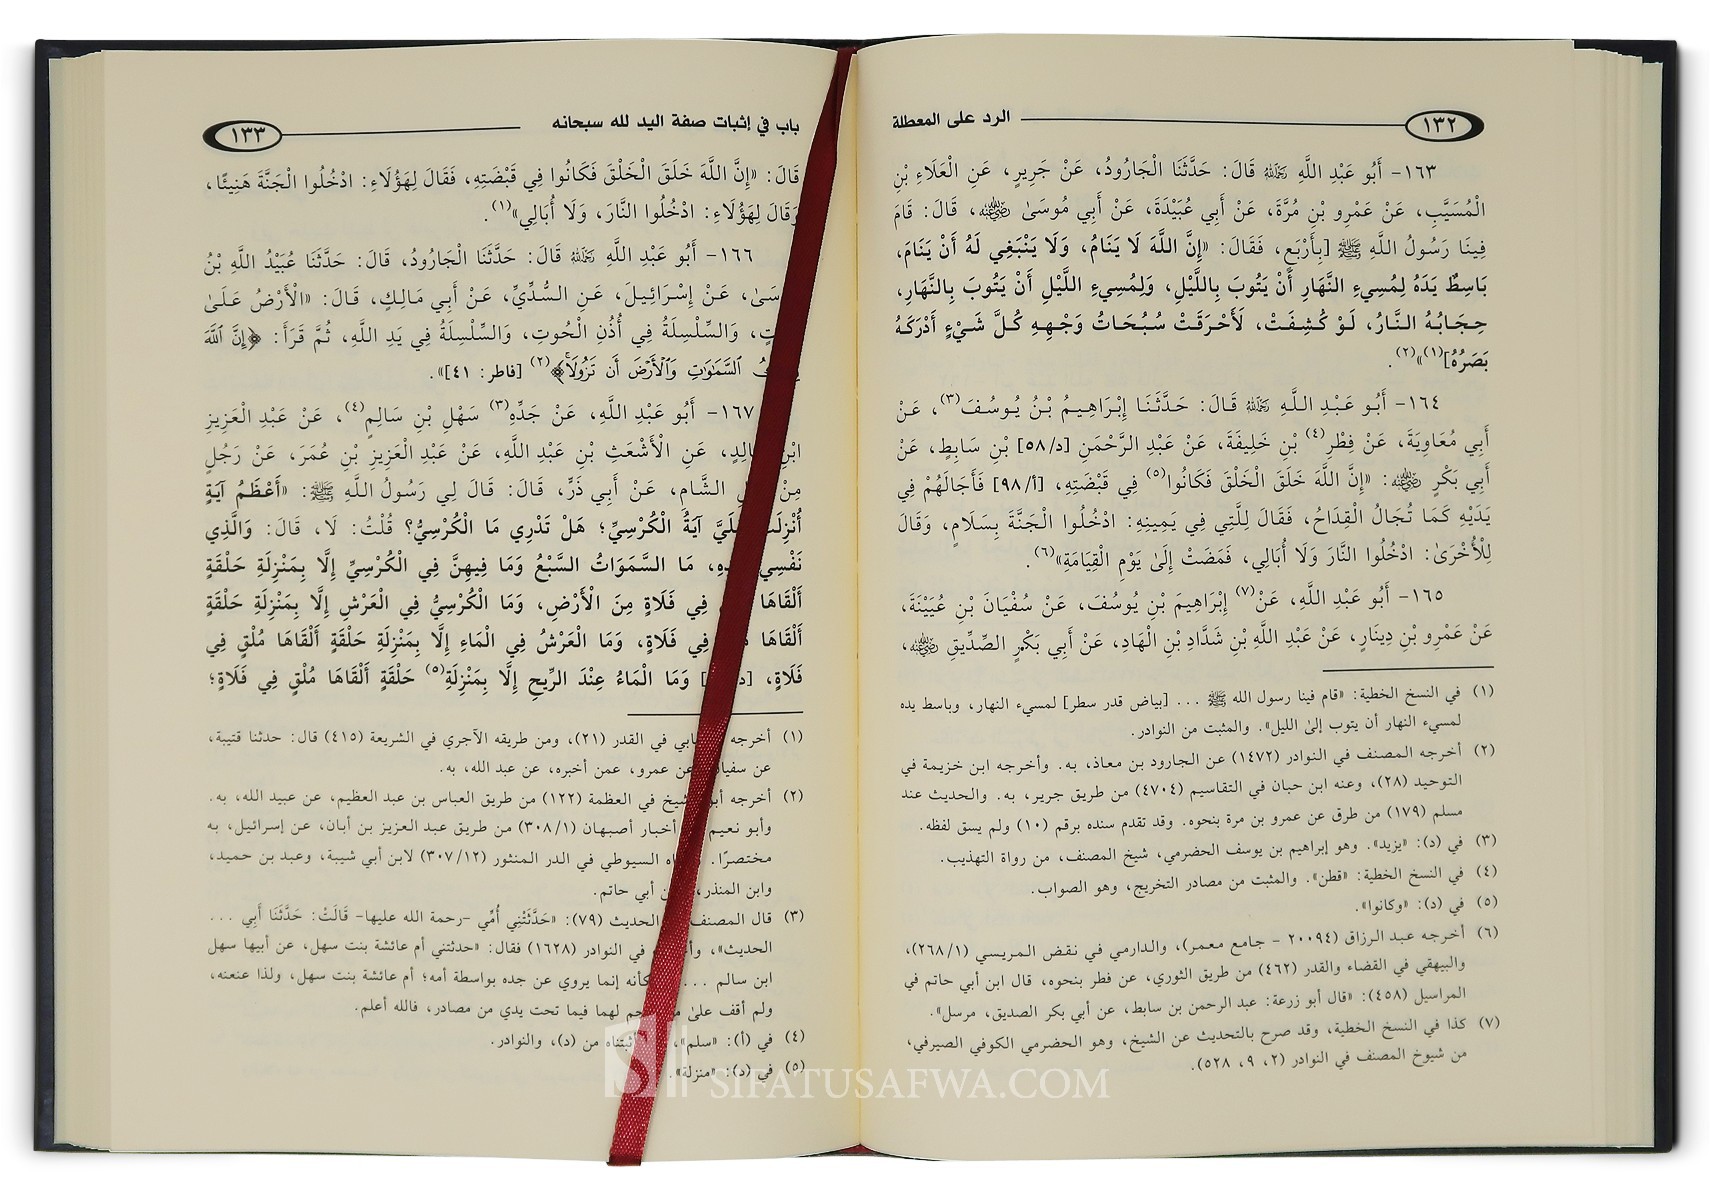 ١٣٢ الرد على المعطلة
١٦٣- أَبُو عَبْدِ اللَّهِ رَحِمَهُ اللَّهُ قَالَ: حَدَّثَنَا الْجَارُودُ، عَنْ جَرِيرٍ، عَنِ الْعَلَاءِ بْنِ
الْمُسَيَّبِ، عَنْ عَمْرِو بْنِ مُرَّةَ، عَنْ أَبِي عُبَيْدَةَ، عَنْ أَبِي مُوسَىٰ رَضِيَ اللَّهُ عَنْهُ، قَالَ: قَامَ
فِينَا رَسُولُ اللَّهِ ﷺ [بِأَرْبَعٍ، فَقَالَ: «إِنَّ اللَّهَ لَا يَنَامُ، وَلَا يَنْبَغِي لَهُ أَنْ يَنَامَ،
بَاسِطٌ يَدَهُ لِمُسِيءِ النَّهَارِ أَنْ يَتُوبَ بِاللَّيْلِ، وَلِمُسِيءِ اللَّيْلِ أَنْ يَتُوبَ بِالنَّهَارِ،
حِجَابُهُ النَّارُ، لَوْ كُشِفَتْ، لَأَحْرَقَتْ سُبُحَاتُ وَجْهِهِ كُلَّ شَيْءٍ أَدْرَكَهُ
بَصَرُهُ](١)»(٢).
١٦٤- أَبُو عَبْدِ اللَّهِ رَحِمَهُ اللَّهُ قَالَ: حَدَّثَنَا إِبْرَاهِيمُ بْنُ يُوسُفَ(٣)، عَنْ
أَبِي مُعَاوِيَةَ، عَنْ فِطْرِ(٤) بْنِ خَلِيفَةَ، عَنْ عَبْدِ الرَّحْمَنِ [د/٥٨] بْنِ سَابِطٍ، عَنْ
أَبِي بَكْرٍ رَضِيَ اللَّهُ عَنْهُ: «إِنَّ اللَّهَ خَلَقَ الْخَلْقَ فَكَانُوا(٥) فِي قَبْضَتِهِ، [أ/٩٨] فَأَجَالَهُمْ فِي
يَدَيْهِ كَمَا تُجَالُ الْقِدَاحُ، فَقَالَ لِلَّتِي فِي يَمِينِهِ: ادْخُلُوا الْجَنَّةَ بِسَلَامٍ، وَقَالَ
لِلْأُخْرَىٰ: ادْخُلُوا النَّارَ وَلَا أُبَالِي، فَمَضَتْ إِلَىٰ يَوْمِ الْقِيَامَةِ»(٦).
١٦٥- أَبُو عَبْدِ اللَّهِ، عَنْ(٧) إِبْرَاهِيمَ بْنِ يُوسُفَ، عَنْ سُفْيَانَ بْنِ عُيَيْنَةَ،
عَنْ عَمْرِو بْنِ دِينَارٍ، عَنْ عَبْدِ اللَّهِ بْنِ شَدَّادِ بْنِ الْهَادِ، عَنْ أَبِي بَكْرٍ الصِّدِّيقِ رَضِيَ اللَّهُ عَنْهُ،
(١) في النسخ الخطية: «قام فينا رسول الله ﷺ ... [بياض قدر سطر] لمسيء النهار، وباسط يده
لمسيء النهار أن يتوب إلىٰ الليل». والمثبت من النوادر.
(٢) أخرجه المصنف في النوادر (١٤٧٢) عن الجارود بن معاذ، به. وأخرجه ابن خزيمة في
التوحيد (٢٨)، وعنه ابن حبان في التقاسيم (٤٧٠٤) من طريق جرير، به. والحديث عند
مسلم (١٧٩) من طرق عن عمرو بن مرة بنحوه. وقد تقدم سنده برقم (١٠) ولم يسق لفظه.
(٣) في (د): «يزيد». وهو إبراهيم بن يوسف الحضرمي، شيخ المصنف، من رواة التهذيب.
(٤) في النسخ الخطية: «قطن». والمثبت من مصادر التخريج، وهو الصواب.
(٥) في (د): «وكانوا».
(٦) أخرجه عبد الرزاق (٢٠٠٩٤ - جامع معمر)، والدارمي في نقض المريسي (٢٦٨/١)،
والبيهقي في القضاء والقدر (٤٦٢) من طريق الثوري، عن فطر بنحوه، قال ابن أبي حاتم في
المراسيل (٤٥٨): «قال أبو زرعة: عبد الرحمن بن سابط، عن أبي بكر الصديق، مرسل».
(٧) كذا في النسخ الخطية، وقد صرح بالتحديث عن الشيخ، وهو الحضرمي الكوفي الصيرفي،
من شيوخ المصنف في النوادر (٢، ٩، ٥٢٨).
باب في إثبات صفة اليد لله سبحانه ١٣٣
قَالَ: «إِنَّ اللَّهَ خَلَقَ الْخَلْقَ فَكَانُوا فِي قَبْضَتِهِ، فَقَالَ لِهَؤُلَاءِ: ادْخُلُوا الْجَنَّةَ هَنِيئًا،
وَقَالَ لِهَؤُلَاءِ: ادْخُلُوا النَّارَ، وَلَا أُبَالِي»(١).
١٦٦- أَبُو عَبْدِ اللَّهِ رَحِمَهُ اللَّهُ قَالَ: حَدَّثَنَا الْجَارُودُ، قَالَ: حَدَّثَنَا عُبَيْدُ اللَّهِ بْنُ
عَنْ إِسْرَائِيلَ، عَنِ السُّدِّيِّ، عَنْ أَبِي مَالِكٍ، قَالَ: «الْأَرْضُ عَلَىٰ
وَالسِّلْسِلَةُ فِي أُذُنِ الْحُوتِ، وَالسِّلْسِلَةُ فِي يَدِ اللَّهِ، ثُمَّ قَرَأَ: ﴿إِنَّ ٱللَّهَ
ٱلسَّمَٰوَٰتِ وَٱلْأَرْضَ أَن تَزُولَا﴾(٢) [فاطر: ٤١]».
١٦٧- أَبُو عَبْدِ اللَّهِ، عَنْ جَدِّهِ(٣) سَهْلِ بْنِ سَالِمٍ(٤)، عَنْ عَبْدِ الْعَزِيزِ
ابْنِ عَنِ الْأَشْعَثِ بْنِ عَبْدِ اللَّهِ، عَنْ عَبْدِ الْعَزِيزِ بْنِ عُمَرَ، عَنْ رَجُلٍ
مِنْ الشَّامِ، عَنْ أَبِي ذَرٍّ، قَالَ: قَالَ لِي رَسُولُ اللَّهِ ﷺ: «أَعْظَمُ آيَةٍ
أُنْزِلَتْ عَلَيَّ آيَةُ الْكُرْسِيِّ؛ هَلْ تَدْرِي مَا الْكُرْسِيُّ؟ قُلْتُ: لَا، قَالَ: وَالَّذِي
نَفْسِي مَا السَّمَوَاتُ السَّبْعُ وَمَا فِيهِنَّ فِي الْكُرْسِيِّ إِلَّا بِمَنْزِلَةِ حَلْقَةٍ
أَلْقَاهَا فِي فَلَاةٍ مِنَ الْأَرْضِ، وَمَا الْكُرْسِيُّ فِي الْعَرْشِ إِلَّا بِمَنْزِلَةِ حَلْقَةٍ
أَلْقَاهَا فِي فَلَاةٍ، وَمَا الْعَرْشُ فِي الْمَاءِ إِلَّا بِمَنْزِلَةِ حَلْقَةٍ أَلْقَاهَا مُلْقٍ فِي
فَلَاةٍ، وَمَا الْمَاءُ عِنْدَ الرِّيحِ إِلَّا بِمَنْزِلَةِ(٥) حَلْقَةٍ أَلْقَاهَا مُلْقٍ فِي فَلَاةٍ؛
(١) أخرجه في القدر (٢١)، ومن طريقه الآجري في الشريعة (٤١٥) قال: حدثنا قتيبة،
عن سفيان، عن عمرو، عمن أخبره، عن عبد الله، به.
(٢) أخرجه أبو الشيخ في العظمة (١٢٢) من طريق العباس بن عبد العظيم، عن عبيد الله، به.
وأبو نعيم أخبار أصبهان (٣٠٨/١) من طريق عبد العزيز بن أبان، عن إسرائيل، به
مختصرًا. السيوطي في الدر المنثور (٣٠٧/١٢) لابن أبي شيبة، وعبد بن حميد،
وابن المنذر، أبي حاتم.
(٣) قال المصنف الحديث (٧٩): «حَدَّثَتْنِي أُمِّي -رحمة الله عليها- قَالَتْ: حَدَّثَنَا أَبِي ...
الحديث»، في النوادر (١٦٢٨) فقال: «حدثتني أم عائشة بنت سهل، عن أبيها سهل
ابن سالم ... كأنه إنما يروي عن جده بواسطة أمه؛ أم عائشة بنت سهل، ولذا عنعنه،
ولم أقف علىٰ لهما فيما تحت يدي من مصادر، فالله أعلم.
(٤) في (أ): «سلم»، أثبتناه من (د)، والنوادر.
(٥) في (د): «منزلة».
SIFATUSAFWA.COM